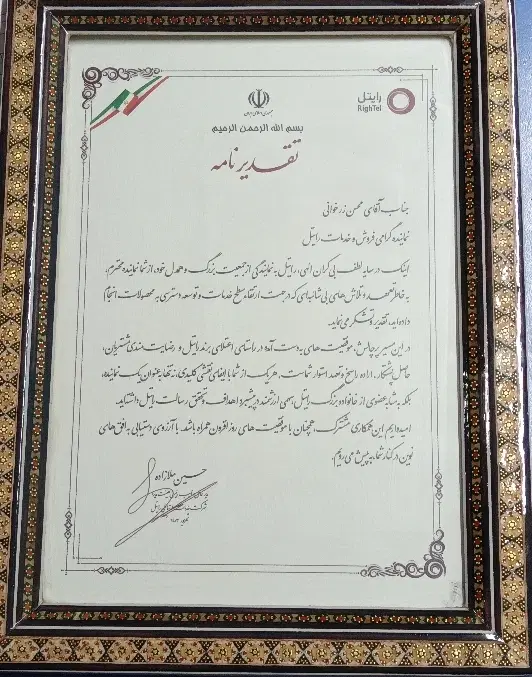 رایتل
RighTel
جمهوری اسلامی ایران
بسم الله الرحمن الرحیم
تقدیرنامه
جناب آقای محسن زرخوانی
نماینده گرامی فروش و خدمات رایتل
اینک در سایه لطف بی کران الهی، رایتل به نمایندگی از جمعیت بزرگ و همدل خود، از شما نماینده محترم،
به خاطر تعهد و تلاش های بی شائبه‌ای که در جهت ارتقاء سطح خدمات و توسعه دسترسی به محصولات انجام
داده‌اید، تقدیر و تشکر می نماید.
در این مسیر پرچالش، موفقیت های به دست آمده در راستای اعتلای برند رایتل و رضایت مندی مشتریان،
حاصل پشتکار، اراده راسخ و تعهد استوار شماست. هر یک از شما با ایفای نقشی کلیدی، نه تنها به عنوان یک نماینده،
بلکه به مثابه عضوی از خانواده بزرگ رایتل سهمی ارزشمند در پیشبرد اهداف و تحقق رسالت رایتل داشته‌اید.
امیدواریم این همکاری مشترک، همچنان با موفقیت های روز افزون همراه باشد. با آرزوی دستیابی به افق های
نوین در کنار شما، به پیش می رویم.
حسین ملازاده